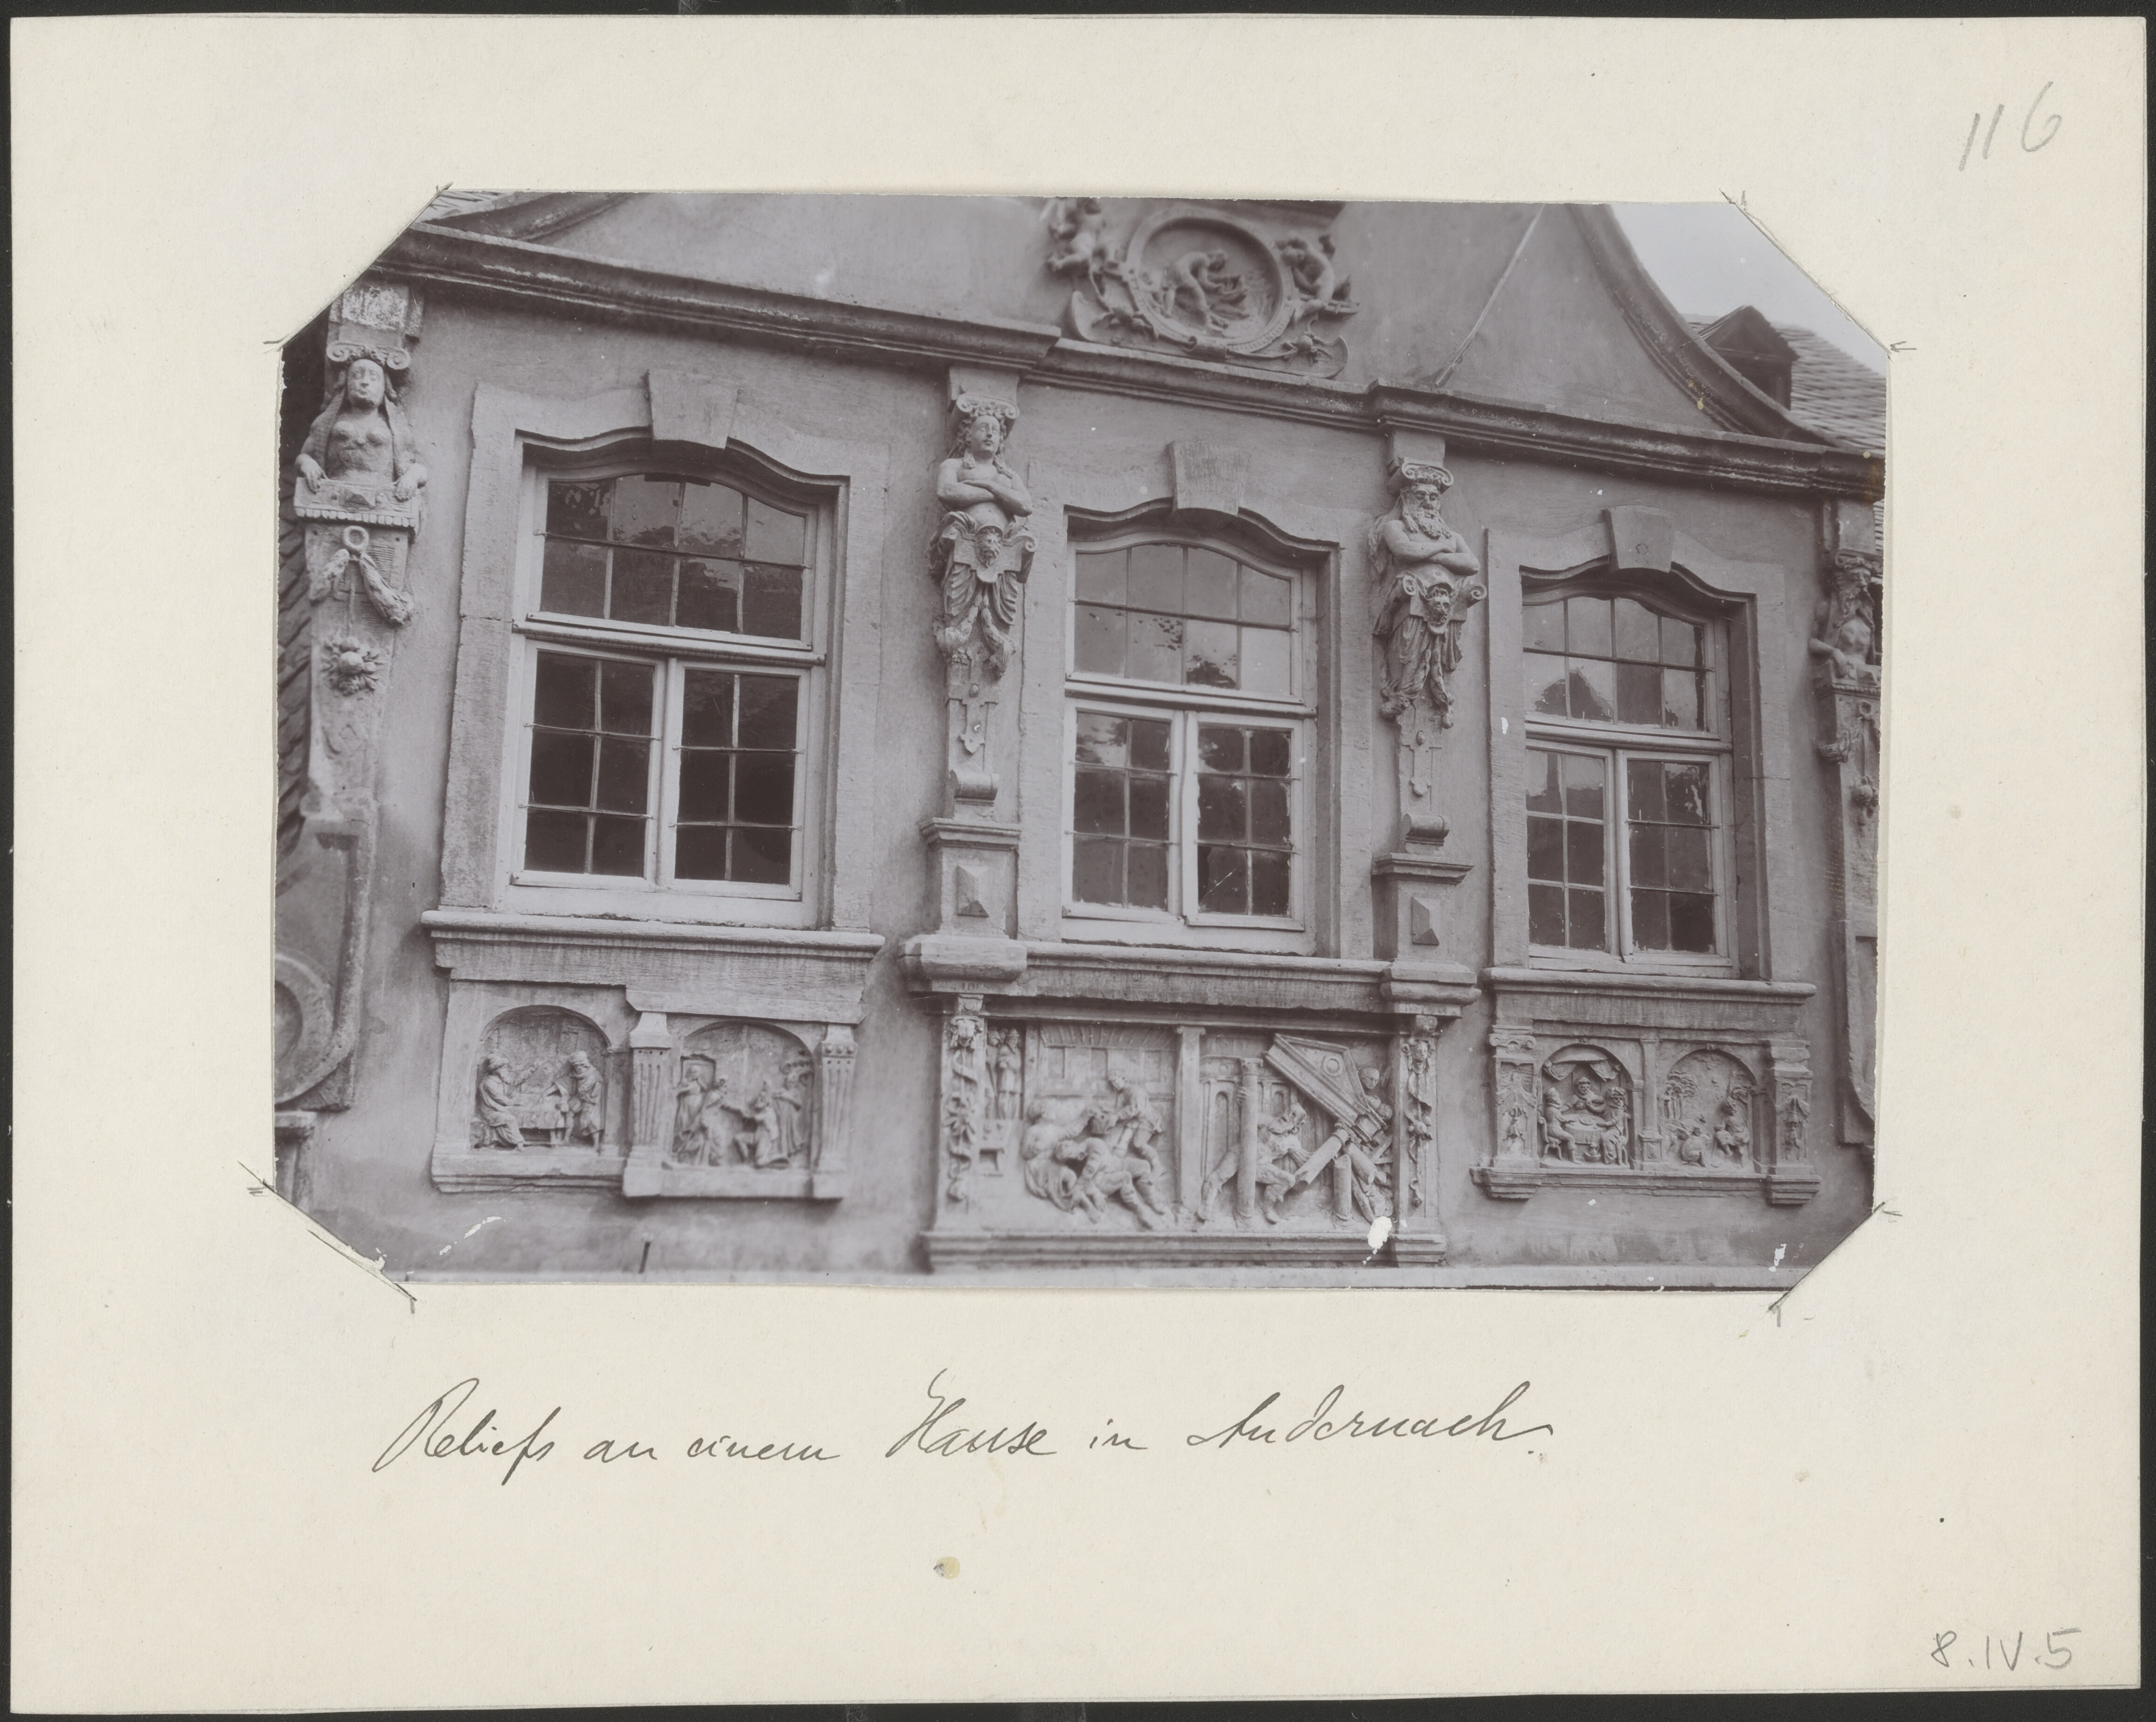 116
Reliefs an einem Hause in Andernach.
8.IV.5